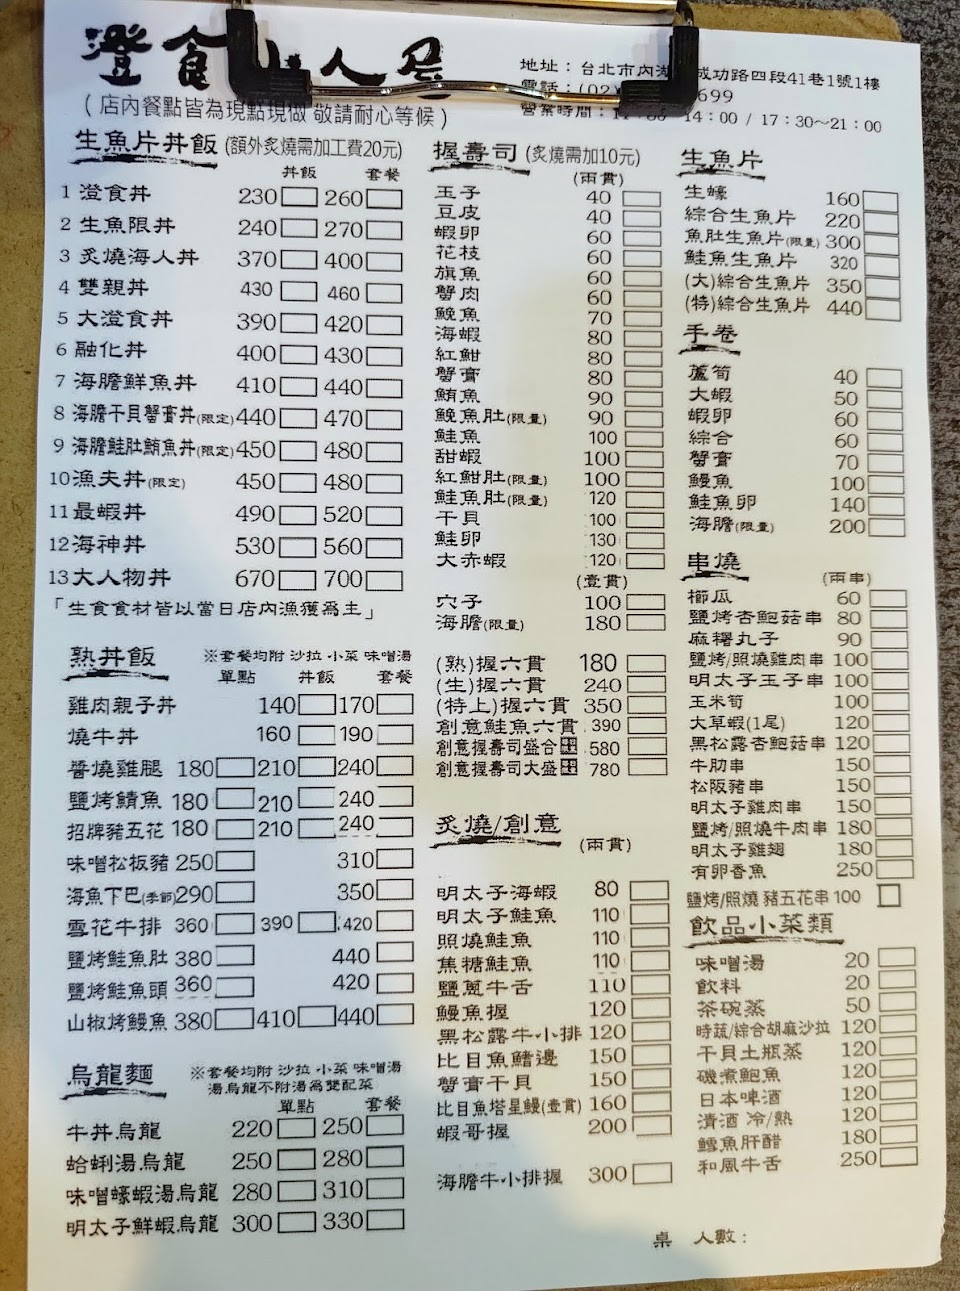 澄食 人
地址：台北市內湖 成功路四段41巷1號1樓
電話：(02) 699
營業時間： 14：00 / 17：30～21：00
(店內餐點皆為現點現做 敬請耐心等候)
生魚片丼飯 (額外炙燒需加工費20元)
丼飯 套餐
1 澄食丼 230 260
2 生魚限丼 240 270
3 炙燒海人丼 370 400
4 雙親丼 430 460
5 大澄食丼 390 420
6 融化丼 400 430
7 海膽鮮魚丼 410 440
8 海膽干貝蟹膏丼(限定) 440 470
9 海膽鮭肚鮪魚丼(限定) 450 480
10 漁夫丼(限定) 450 480
11 最蝦丼 490 520
12 海神丼 530 560
13 大人物丼 670 700
「生食食材皆以當日店內漁獲為主」
熟丼飯 ※套餐均附 沙拉 小菜 味噌湯
單點 丼飯 套餐
雞肉親子丼 140 170
燒牛丼 160 190
醬燒雞腿 180 210 240
鹽烤鯖魚 180 210 240
招牌豬五花 180 210 240
味噌松板豬 250 310
海魚下巴(季節) 290 350
雪花牛排 360 390 420
鹽烤鮭魚肚 380 440
鹽烤鮭魚頭 360 420
山椒烤鰻魚 380 410 440
烏龍麵 ※套餐均附 沙拉 小菜 味噌湯
湯烏龍不附湯為雙配菜
單點 套餐
牛丼烏龍 220 250
蛤蜊湯烏龍 250 280
味噌蠔蝦湯烏龍 280 310
明太子鮮蝦烏龍 300 330
握壽司 (炙燒需加10元)
(兩貫)
玉子 40
豆皮 40
蝦卵 60
花枝 60
旗魚 60
蟹肉 60
鮸魚 70
海蝦 80
紅魽 80
蟹膏 80
鮪魚 90
鮸魚肚(限量) 90
鮭魚 100
甜蝦 100
紅魽肚(限量) 100
鮭魚肚(限量) 120
干貝 100
鮭卵 130
大赤蝦 120
(壹貫)
穴子 100
海膽(限量) 180
(熟)握六貫 180
(生)握六貫 240
(特上)握六貫 350
創意鮭魚六貫 390
創意握壽司盛合 580
創意握壽司大盛 780
炙燒/創意 (兩貫)
明太子海蝦 80
明太子鮭魚 110
照燒鮭魚 110
焦糖鮭魚 110
鹽蔥牛舌 110
鰻魚握 120
黑松露牛小排 120
比目魚鰭邊 150
蟹膏干貝 150
比目魚塔星鰻(壹貫) 160
蝦哥握 200
海膽牛小排握 300
生魚片
生蠔 160
綜合生魚片 220
魚肚生魚片(限量) 300
鮭魚生魚片 320
(大)綜合生魚片 350
(特)綜合生魚片 440
手卷
蘆筍 40
大蝦 50
蝦卵 60
綜合 60
蟹膏 70
鰻魚 100
鮭魚卵 140
海膽(限量) 200
串燒 (兩串)
櫛瓜 60
鹽烤杏鮑菇串 80
麻糬丸子 90
鹽烤/照燒雞肉串 100
明太子玉子串 100
玉米筍 100
大草蝦(1尾) 120
黑松露杏鮑菇串 120
牛肋串 150
松阪豬串 150
明太子雞肉串 150
鹽烤/照燒牛肉串 180
明太子雞翅 180
有卵香魚 250
鹽烤/照燒 豬五花串 100
飲品小菜類
味噌湯 20
飲料 20
茶碗蒸 50
時蔬/綜合胡麻沙拉 120
干貝土瓶蒸 120
磯煮鮑魚 120
日本啤酒 120
清酒 冷/熱 120
鱈魚肝醋 180
和風牛舌 250
桌 人數：